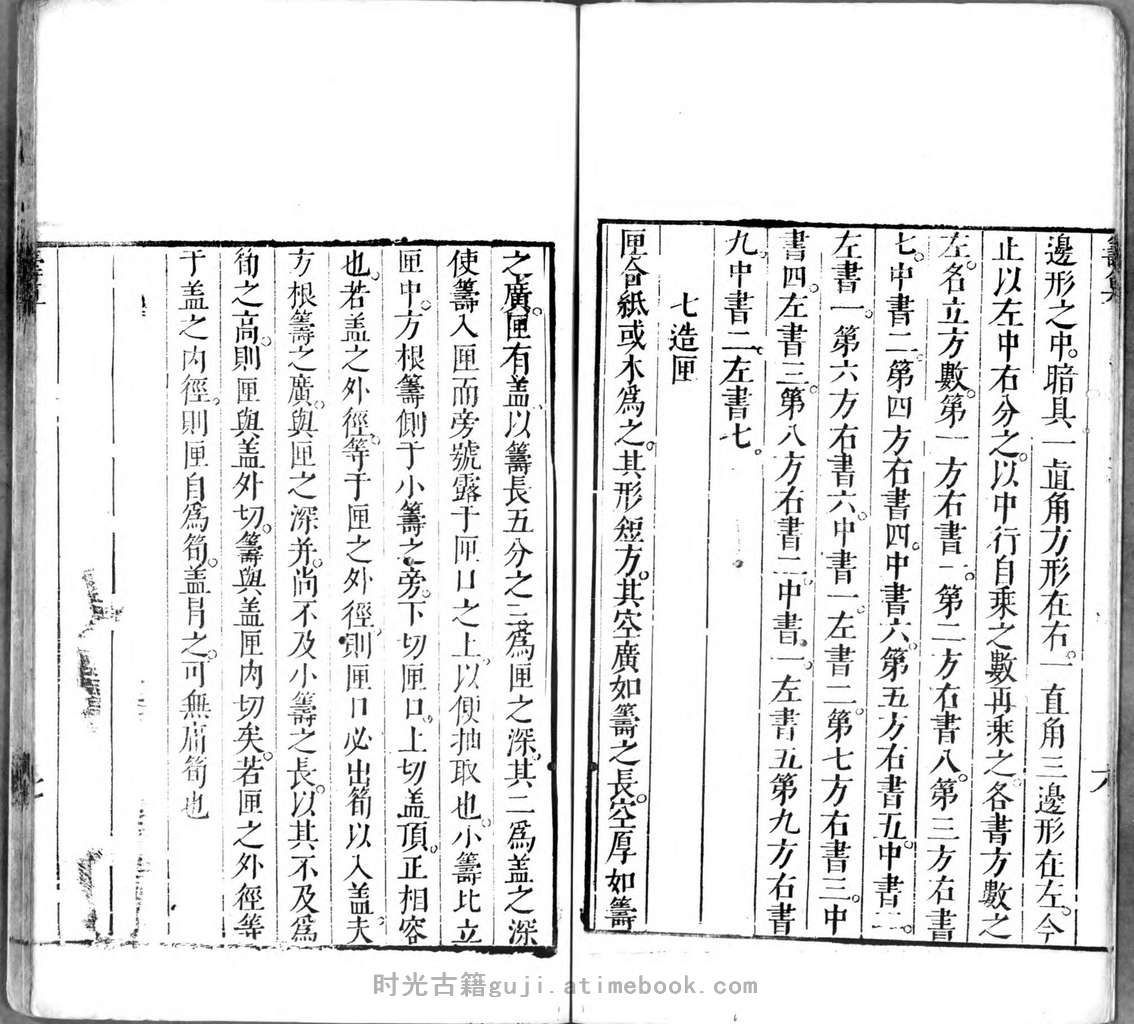 籌算
邊形之中。暗具一直角方形在右。一直角三邊形在左。今
止以左中右分之。以中行自乘之數再乘之。各書方數之
左。名立方數。第一方右書一。第二方右書八。第三方右書
七。中書二。第四方右書四。中書六。第五方右書五。中書二。
左書一。第六方右書六。中書一。左書二。第七方右書三。中
書四。左書三。第八方右書二。中書一。左書五。第九方右書
九。中書二。左書七。
七造匣
匣或紙或木爲之。其形短方。其空廣如籌之長。空厚如籌
六
之廣。匣有盖。以籌長五分之三爲匣之深。其二爲盖之深
使籌入匣而旁號露于匣口之上。以便抽取也。小籌比立
匣中。方根籌側于小籌之旁。下切匣口。上切盖頂。正相容
也。若盖之外徑。等于匣之外徑。則匣口必出筍以入盖。夫
方根籌之廣。與匣之深并。尚不及小籌之長。以其不及爲
筍之高。則匣與盖外切。籌與盖匣内切矣。若匣之外徑等
于盖之内徑。則匣自爲筍。盖冐之。可無庸筍也
七
时光古籍guji.atimebook.com